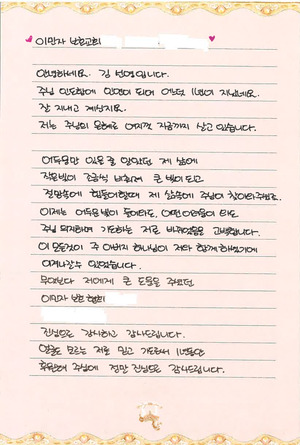 이민자 보호교회
안녕하세요. 김 선영입니다.
주님 인도함에 인연이 되어 어느덧 1년이 지났네요.
잘 지내고 계신지요.
저는 주님의 은혜로 여지껏 지금까지 살고 있습니다.
어두움만 있을 줄 알았던 제 삶에
작은빛이 조금씩 비춰져 큰 빛이 되고
절망속에 힘들어할때 제 삶속에 주님이 찾아와주셨고,
이제는 어두운 밤이 돌아와도, 어떤 어려움이 와도
주님 의지하며 기도하는 저로 바뀌었음을 고백합니다.
이 모든것이 주 아버지 하나님이 저와 함께 하셨기에
이겨나갈수 있었습니다.
무엇보다 저에게 큰 도움을 주셨던
이민자 보호 협회
진심으로 감사하고 감사드립니다.
얼굴도 모르는 저를 믿고 기도하며 1년동안
후원해 주심에 정말 진심으로 감사드립니다.